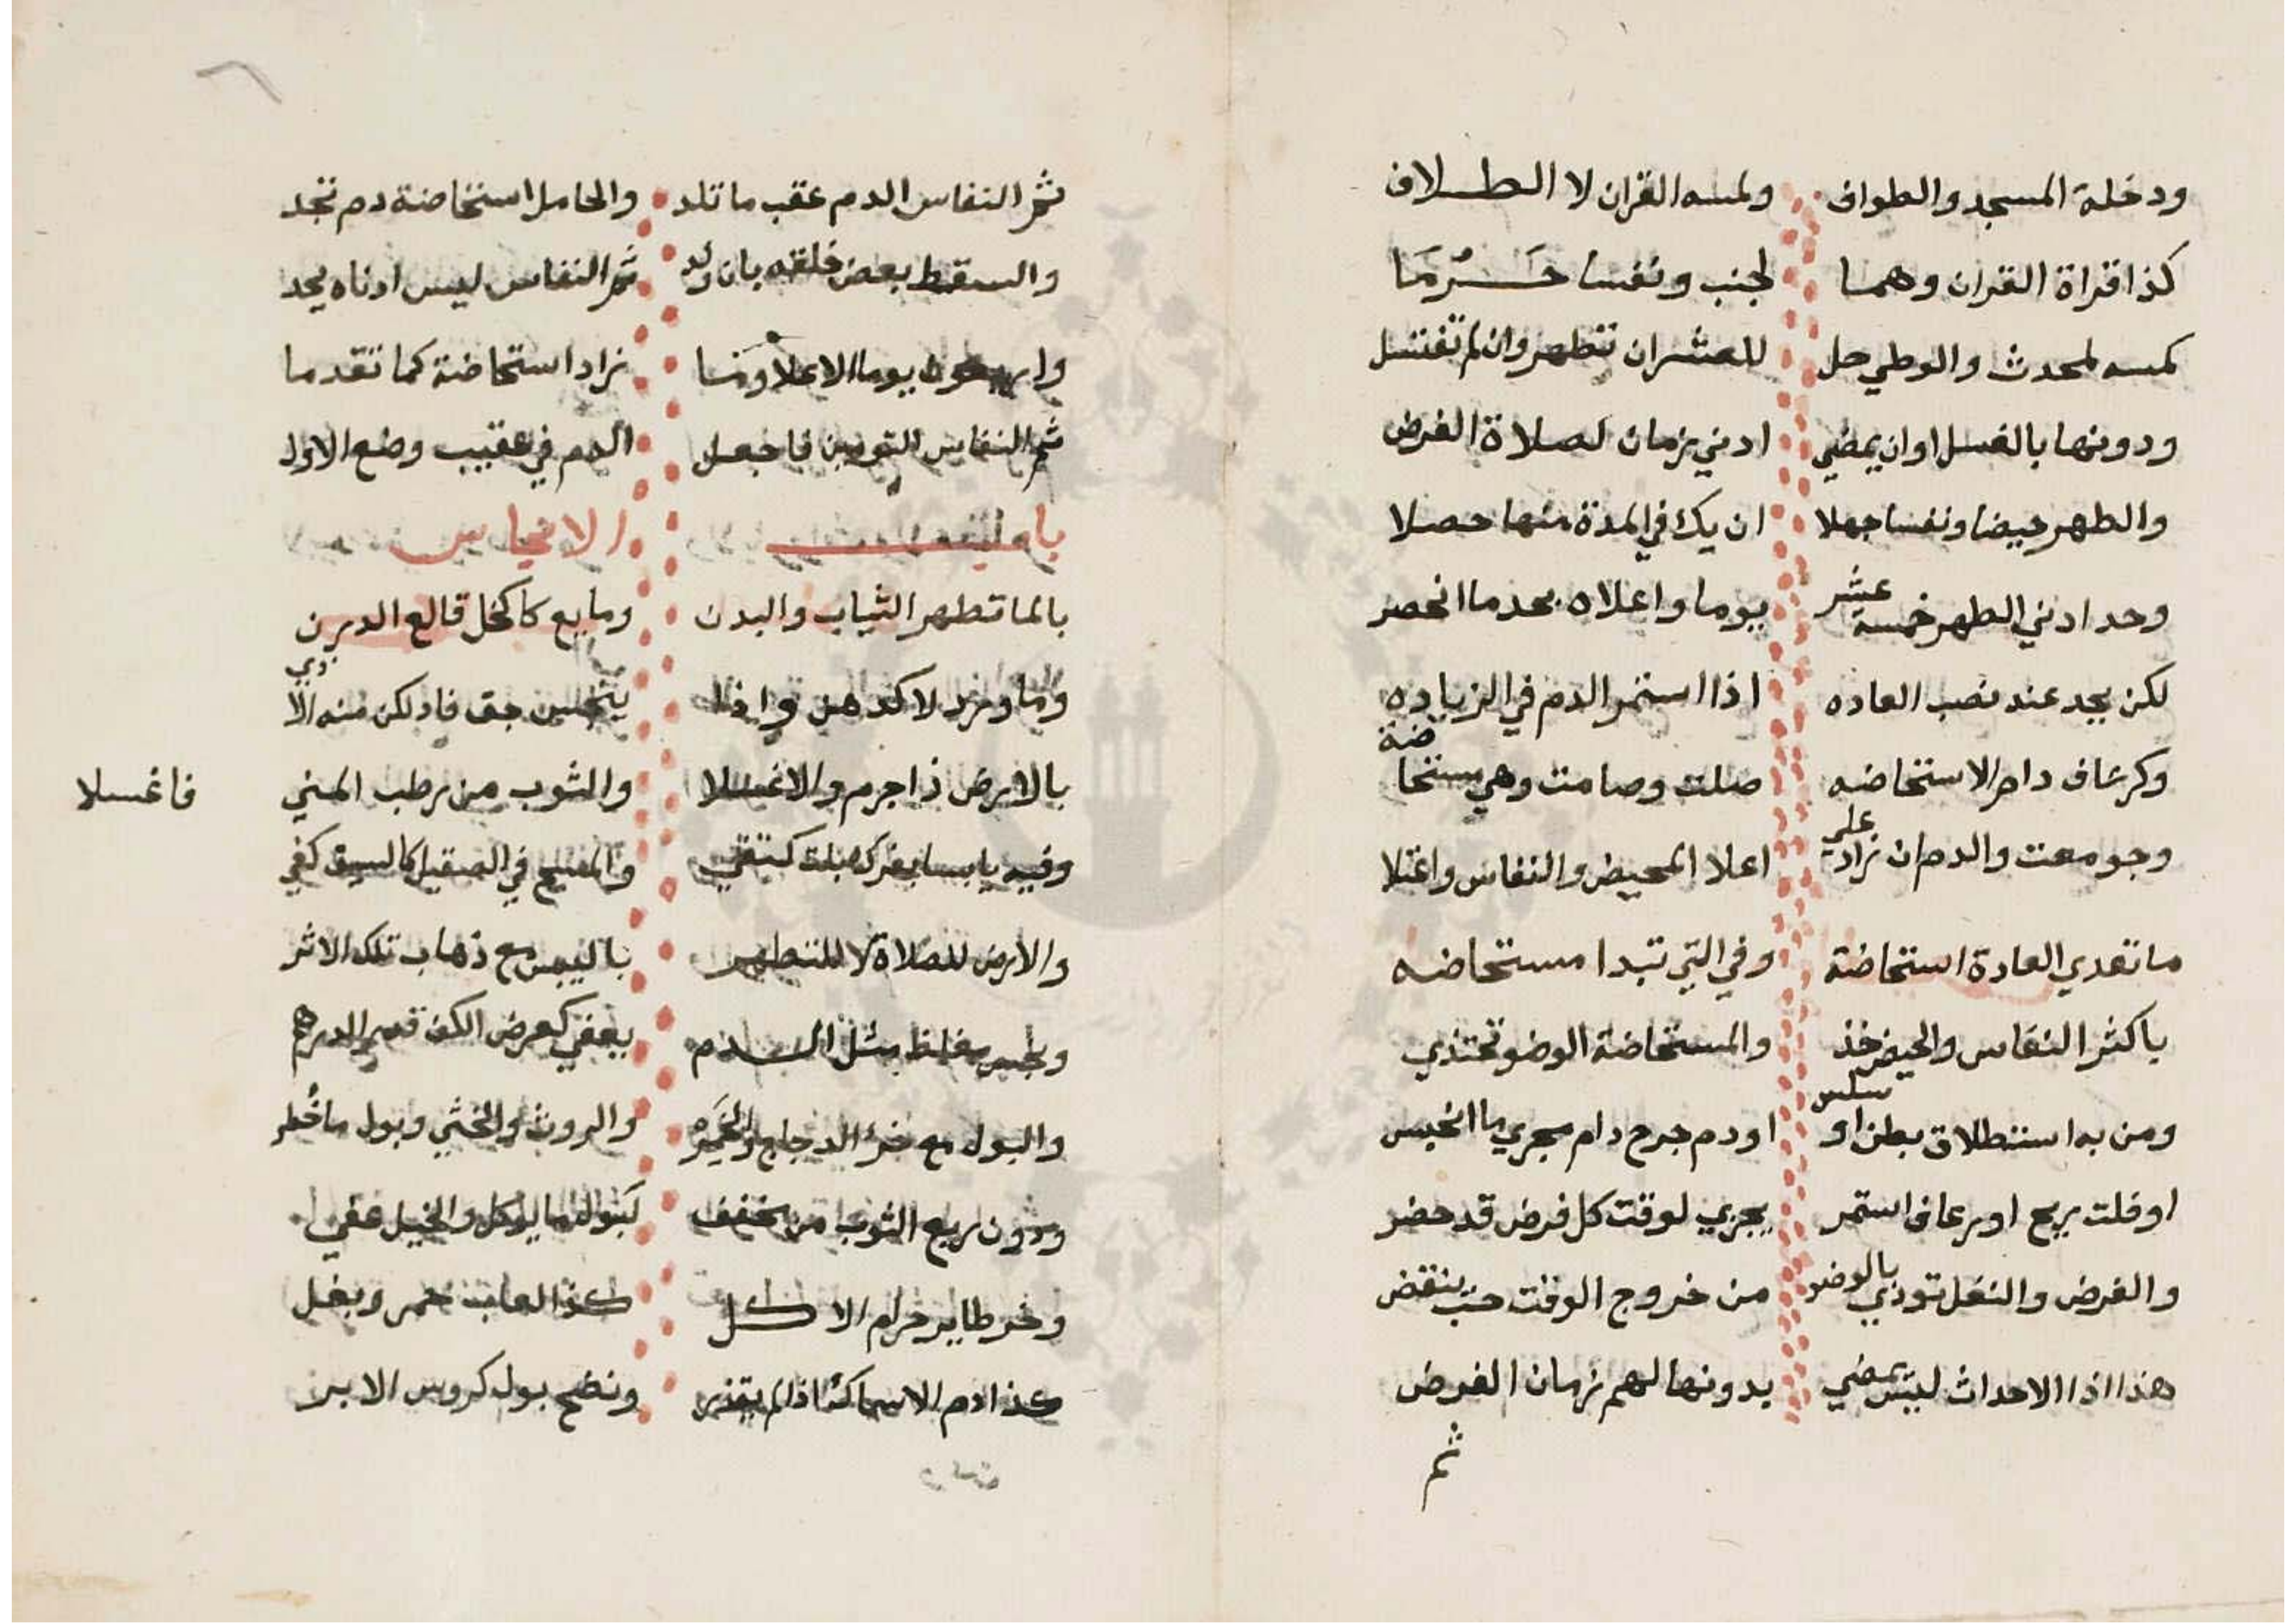 ودخلة المسجد والطواف ولمسه القران لا الطلاف
كذا قراة القران وهما لجنب ونفسا حَرُمَا
كمسه لمحدث والوطي حل للعشران تطهر وان لم تغتسل
ودونها بالغسل او ان يمضي ادني زمان لصلاة الفرض
والطهر حيضا ونفسا جهلا ان يك في المدة منها حصلا
وحد ادني الطهر خمسة عشر يوما واعلاه بحد ما انحصر
لكن يحد عند نصب العاده اذا استمر الدم في الزياده
وكرعاف دام الاستحاضه صلت وصامت وهي مستحاضة
وجومعت والدم ان زاد علي اعلا المحيض والنفاس واعتلا
ما تعدي العادة استحاضة وفي التي تبدا مستحاضه
باكثر النفاس والحيض خذ والمستحاضة الوضو تحتذي
ومن به استطلاق بطن او سلس او دم جرح دام يجري ما انحبس
او فلت ريح او رعاف استمر يجزي لوقت كل فرض قد حضر
والفرض والنفل تودي بالوضو من خروج الوقت حتب ينقض
هذا اذا الاحداث ليس تمضي بدونها لهم زمان الفرض
ثم
ثم النفاس الدم عقب ما تلد والحامل استحاضة دم تجد
والسقط بعض خلقه بان ولد ثم النفاس ليس ادناه يحد
واربعون يوما الاعلا ومَا زاد استحاضة كما تقدما
ثم النفاس التومين فاجعل الدم في عقيب وضع الاول
باب الانجاس
بالما تطهر الثياب والبدن ومايع كالخل قالع الدرن
وما ورد لا كدهن واذا يتنجس خف فادلكن منه الاذي
بالارض ذا جرم والا غسلا والثوب من رطب المني
فاغسلا
وفيه يابسا بفرك كتفي والمسح في الصقيل كالسيف كفي
والارض للصلاة لا للتطهر باليبس مع ذهاب تلك الاثر
ونجس مغلظ مثل الدم يعفي كعرض الكف قدر الدرهم
والبول مع خرء الدجاج والخمر والروث والخثي وبول ما خُطر
ودون ربع الثوب من مخفف كبول ما يوكل والخيل عفي
وخر طاير حرام الاكل كذا لعاب حمر وبغل
كذا دم الاسماك اذا لم يقذر ونضح بول كروس الابر